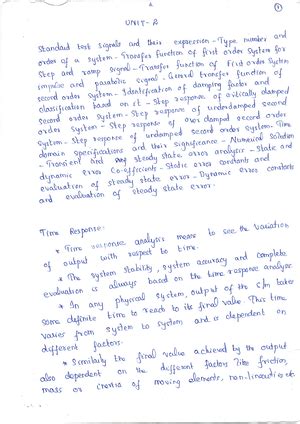 1
UNIT-2
Standard test signals and their expression - Type number and
order of a system - Transfer function of first order system for
Step and ramp signal - Transfer function of first order system
impulse and parabolic signal - General transfer function of
second order system - Identification of damping factor and
classification based on it - Step response of critically damped
second order system - Step response of undamped second
order system - Step response of over damped second order
system - Step response of underdamped second order system - Time
domain specifications and their significance - Numerical solution
- Transient and steady state error analysis - State and
dynamic error Co-efficients - Static error constants and
evaluation of steady state error - Dynamic error constants
and evaluation of steady state error.
Time Response:-
* Time response analysis means to see the variation
of output with respect to time.
* The system stability, system accuracy and complete
evaluation is always based on the time response analysis
* In any physical system, output of the s/m takes
some definite time to reach to its final value. This time
varies from system to system and is dependent on
different factors.
* Similarly the final value achieved by the output
also dependent on the different factors like friction,
mass or inertia of moving elements, non-linearities etc.